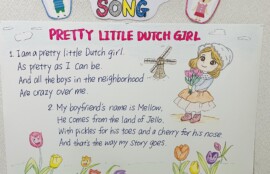 SONG
PRETTY LITTLE DUTCH GIRL
1. I am a pretty little Dutch girl.
As pretty as I can be.
And all the boys in the neighborhood
Are crazy over me.
2. My boyfriend's name is Mellow,
He comes from the land of Jello.
With pickles for his toes and a cherry for his nose
And that's the way my story goes.